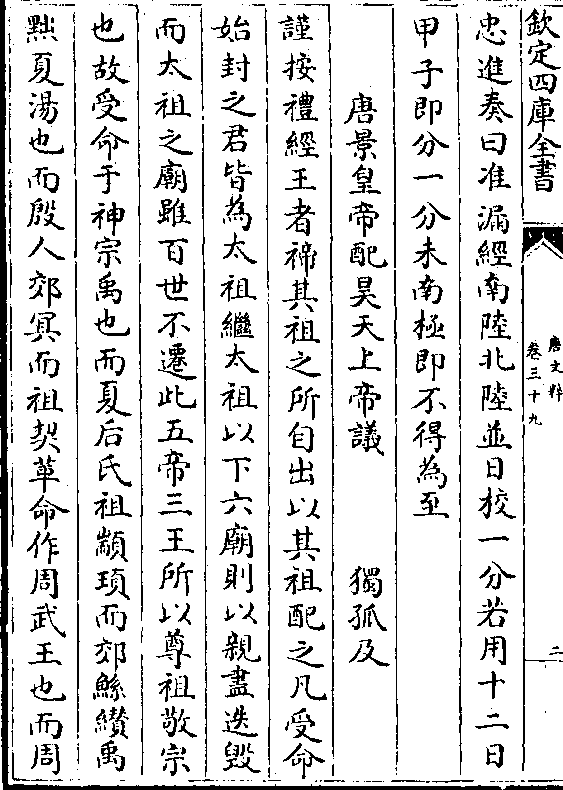 欽定四庫全書
唐文粹
卷三十九
二
忠進奏曰准漏經南陸北陸並日校一分若用十二日
甲子即分一分未南極即不得為至
唐景皇帝配昊天上帝議 獨孤及
謹按禮經王者禘其祖之所自出以其祖配之凡受命
始封之君皆為太祖繼太祖以下六廟則以親盡迭毀
而太祖之廟雖百世不遷此五帝三王所以尊祖敬宗
也故受命于神宗禹也而夏后氏祖顓頊而郊鯀纉禹
黜夏湯也而殷人郊冥而祖契革命作周武王也而周